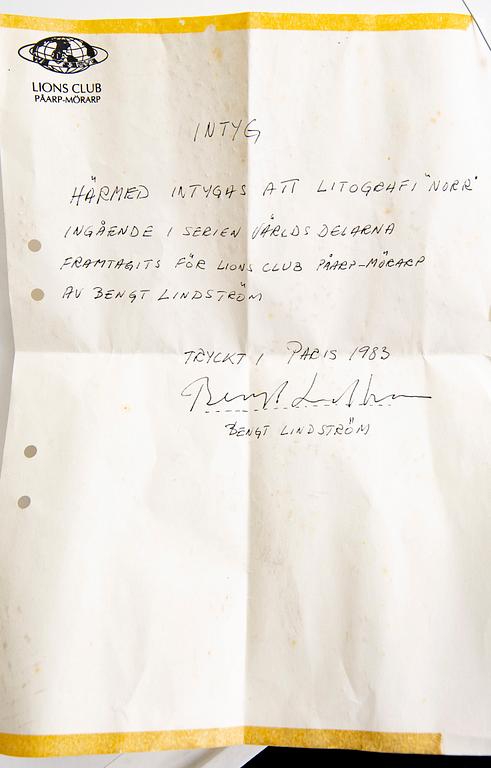 LIONS CLUB
PÅARP-MÖRARP
INTYG
HÄRMED INTYGAS ATT LITOGRAFI "NORR"
INGÅENDE I SERIEN VÄRLDSDELARNA
FRAMTAGITS FÖR LIONS CLUB PÅARP-MÖRARP
AV BENGT LINDSTRÖM
TRYCKT I PARIS 1983
Bengt Lindström
BENGT LINDSTRÖM